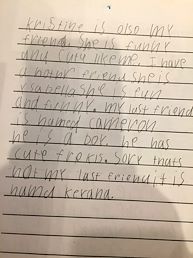 kristine is also my
friend. She is funny
and cute like me. I have
a nothr friend she is
ysabella she is fun
and funny. my last friend
is named cameron
he is a boy. he has
cute frekls. Sory thats
not my last friend it is
named kerana.